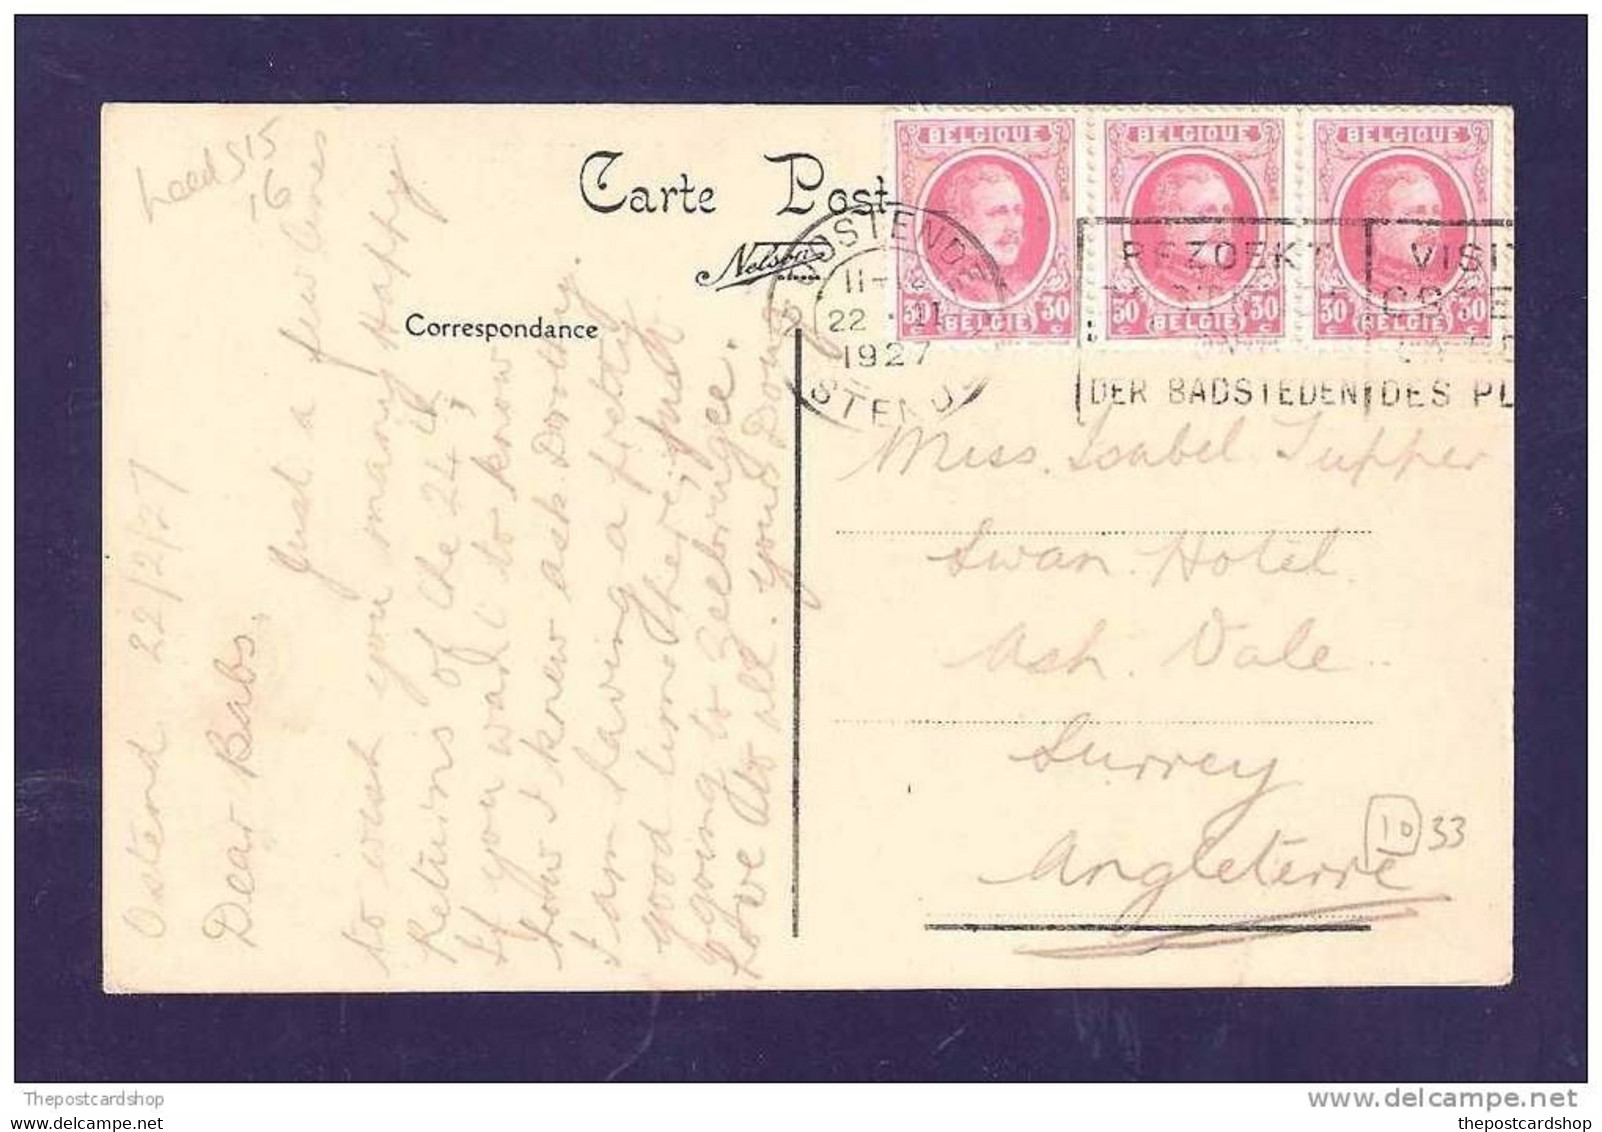 Leeds 15
16
Carte Post
Nelson
Correspondance
BELGIQUE
30 30
BELGIË
BELGIQUE
30 30
BELGIË
BELGIQUE
30 30
BELGIË
OOSTENDE
11-12
22 · II
1927
OSTENDE
BEZOEKT
DER BADSTEDEN
VISIT
DES PL
Ostend 22/2/27
Dear Babs.
Just a few lines
to wish you many Happy
Returns of the 24th,
If you want to know
how I knew ask Dorothy.
I am having a pretty
good time here, just
going to Zeebruggee.
Love to all. yours Doug
Miss. Isabel Tupper
Swan. Hotel.
Ash. Vale..
Surrey
Angleterre
10 33
Thepostcardshop
www.delcampe.net
thepostcardshop